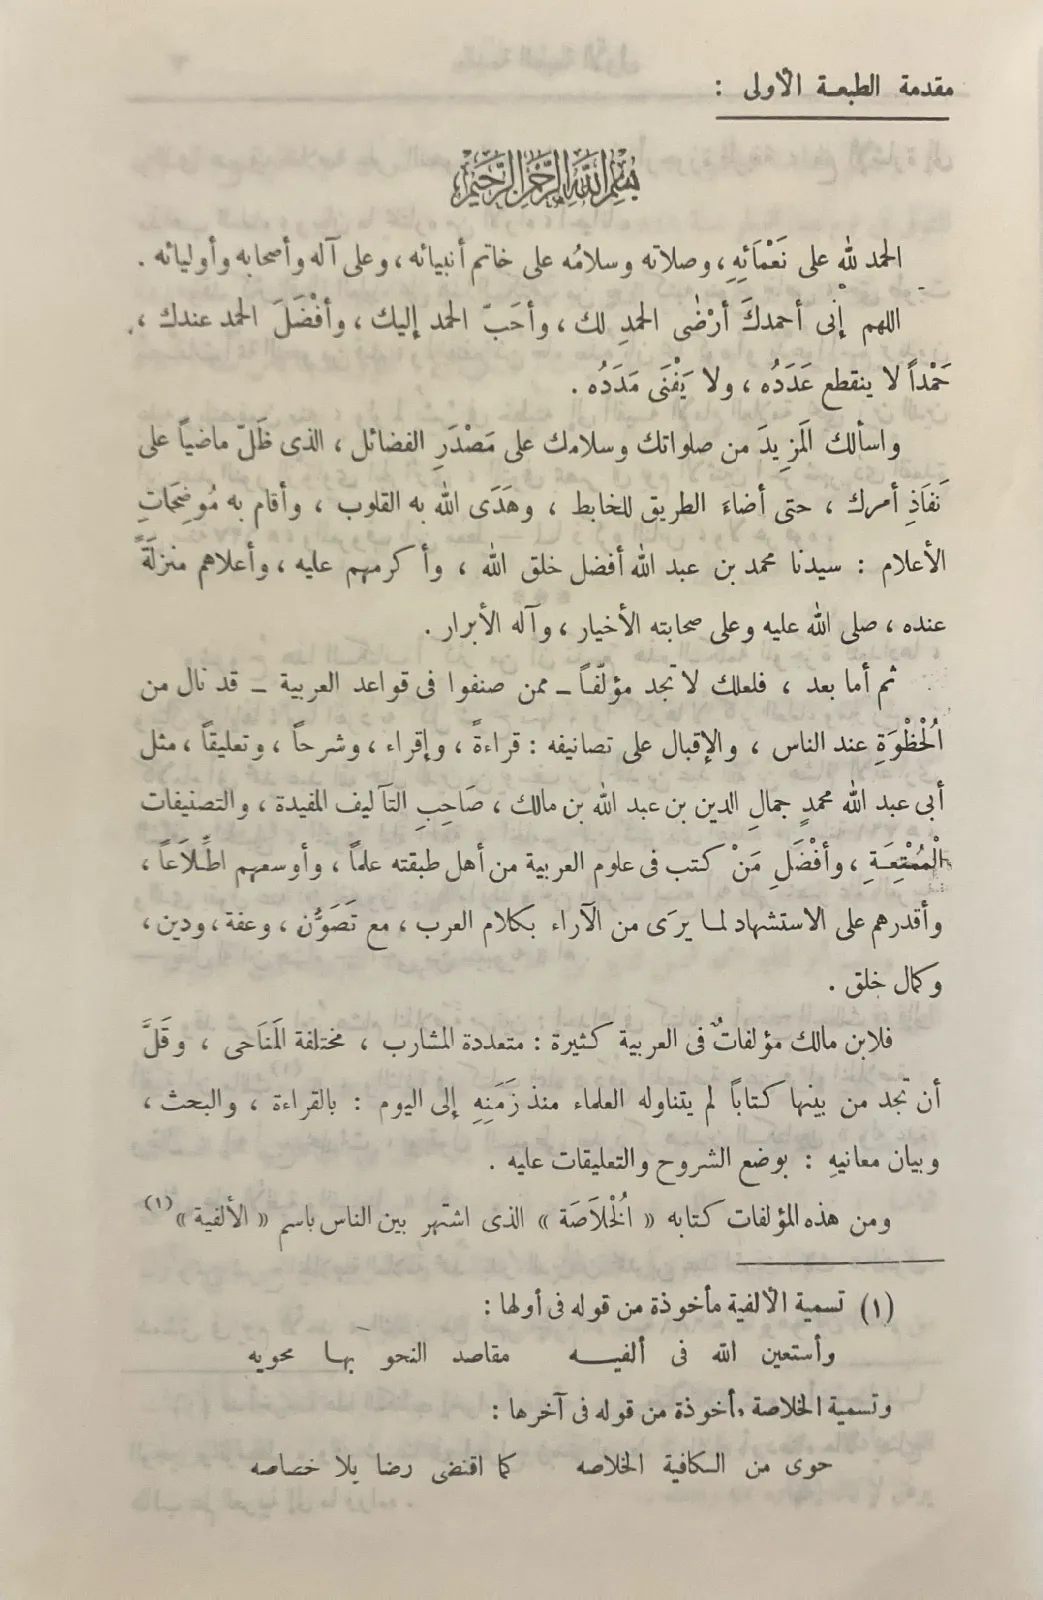 مقدمة الطبعة الأولى :
بسم الله الرحمن الرحيم
الحمد لله على نَعْمَائِهِ ، وصلاته وسلامُه على خاتم أنبيائه ، وعلى آله وأصحابه وأوليائه .
اللهم إنى أحمدكَ أرْضَى الحمدِ لك ، وأحَبّ الحمد إليك ، وأفْضَلَ الحمد عندك ،
حَمْداً لا ينقطع عَدَدُه ، ولا يَفْنَى مَدَدُه .
واسألك المَزِيدَ من صلواتك وسلامك على مَصْدَرِ الفضائل ، الذى ظَلّ ماضياً على
نَفَاذِ أمرك ، حتى أضاءَ الطريق للخابط ، وهَدَى الله به القلوب ، وأقام به مُوضِحَاتِ
الأعلام : سيدنا محمد بن عبد الله أفضل خلق الله ، وأكرمهم عليه ، وأعلاهم منزلَةً
عنده ، صلى الله عليه وعلى صحابته الأخيار ، وآله الأبرار .
ثم أما بعد ، فلعلك لا تجد مؤلّفاً – ممن صنفوا فى قواعد العربية – قد نال من
الُحْظْوَةِ عند الناس ، والإقبال على تصانيفه : قراءةً ، وإقراء ، وشرحاً ، وتعليقاً ، مثل
أبى عبد الله محمدٍ جمالِ الدين بن عبد الله بن مالك ، صَاحِبِ التآليف المفيدة ، والتصنيفات
الْمُمْتِعَةِ ، وأفْضَلِ مَنْ كتب فى علوم العربية من أهل طبقته علماً ، وأوسعهم اطِّلَاعاً ،
وأقدرهم على الاستشهاد لما يرَى من الآراء بكلام العرب ، مع تَصَوُّن ، وعفة ، ودين ،
وكمال خلق .
فلابن مالك مؤلفاتٌ فى العربية كثيرة : متعددة المشارب ، مختلفة المَنَاحى ، وقَلَّ
أن تجد من بينها كتاباً لم يتناوله العلماء منذ زَمَنِهِ إلى اليوم : بالقراءة ، والبحث ،
وبيان معانيهِ : بوضع الشروح والتعليقات عليه .
ومن هذه المؤلفات كتابه « الُخْلَاصَة » الذى اشتهر بين الناس باسم « الألفية »(١)
(١) تسمية الألفية مأخوذة من قوله فى أولها :
وأستعين الله فى ألفيــه مقاصد النحو بها محويه
وتسمية الخلاصة مأخوذة من قوله فى آخرها :
حوى من الكافية الخلاصه كما اقتضى رضا بلا خصاصه